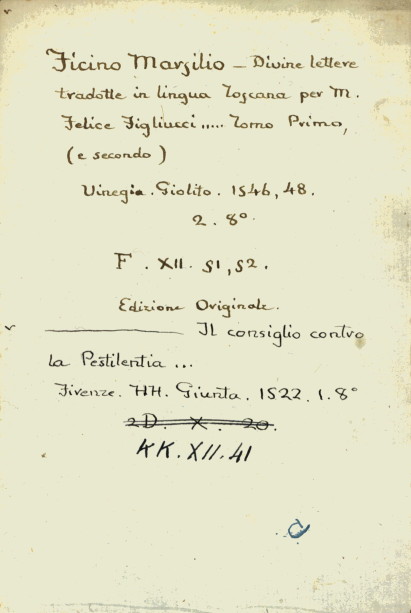 Ficino Marsilio – Divine lettere
tradotte in lingua Toscana per M.
Felice Figliucci ..... Tomo Primo,
(e secondo)
Vinegia. Giolito. 1546, 48.
2. 8°.
F. XII. 51, 52.
Edizione Originale.
——— Il consiglio contro
la Pestilentia ...
Firenze. HH. Giunta. 1522. 1. 8°
2D. X. 20.
KK. XII. 41